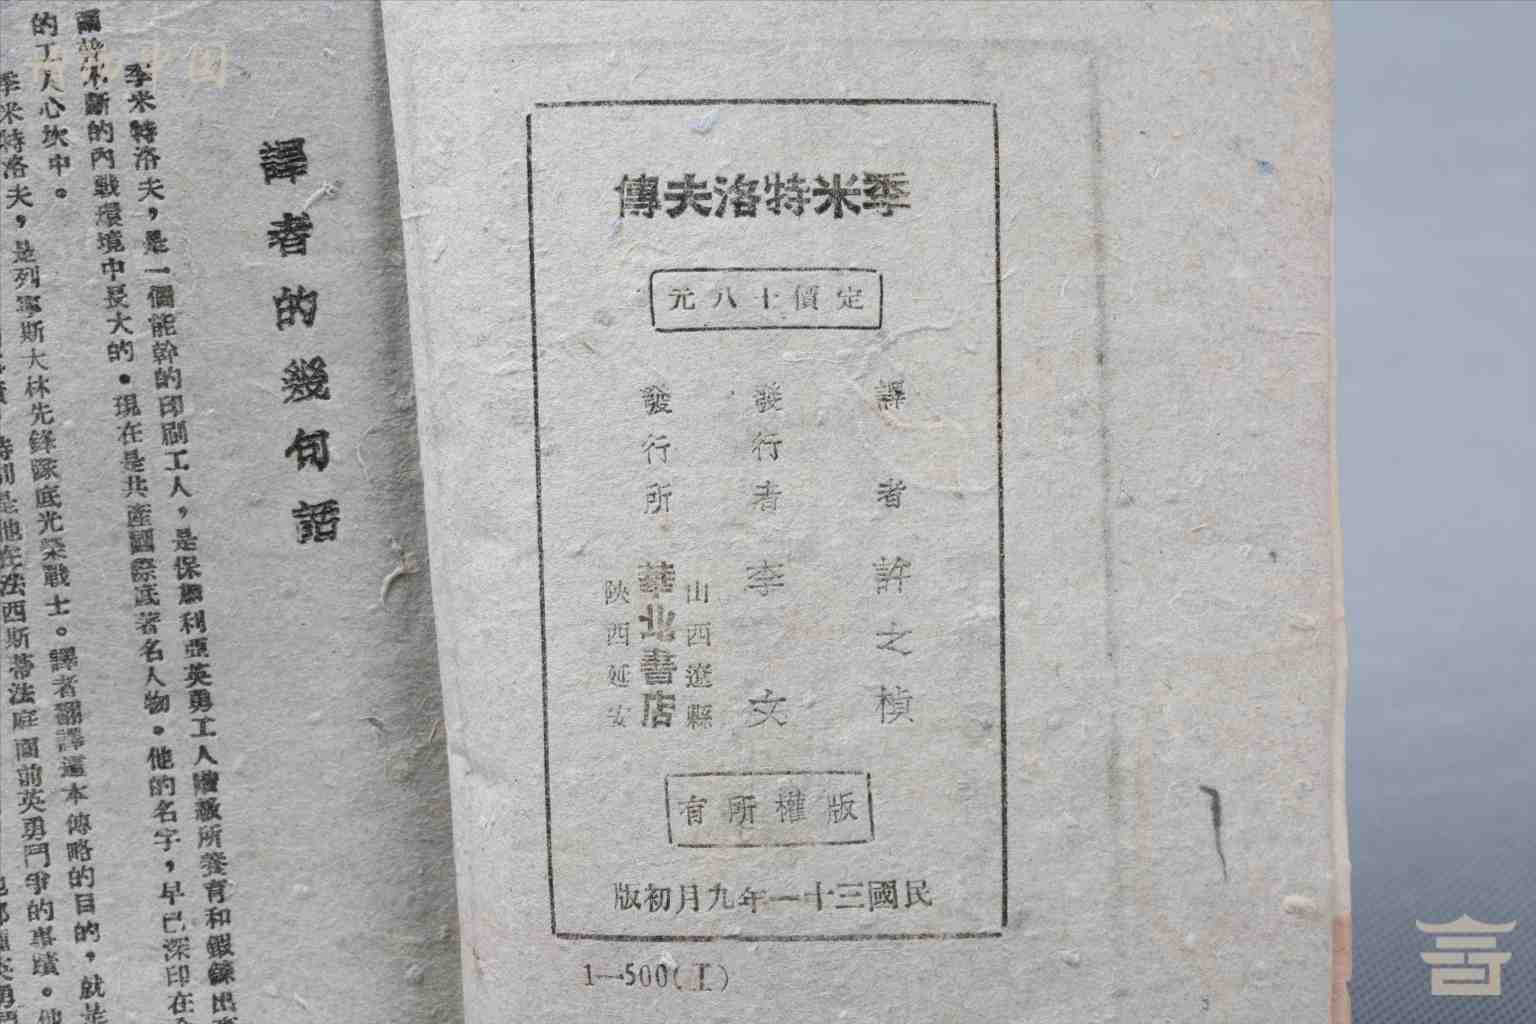 譯者的幾句話
季米特洛夫，是一個能幹的印刷工人，是保加利亞英勇工人階級所養育和鍛鍊出
不斷的內戰環境中長大的。現在是共產國際底著名人物。他的名字，早已深印在
的工人心坎中。
季米特洛夫，是列寧斯大林先鋒隊底光榮戰士。譯者翻譯這本傳略的目的，就是
特別是他在法西斯蒂法庭面前英勇鬥爭的事蹟。他
季米特洛夫傳
定價十八元
譯者 許之楨
發行者 李文
發行所 華北書店
山西遼縣
陝西延安
版權所有
民國三十一年九月初版
1—500(工)